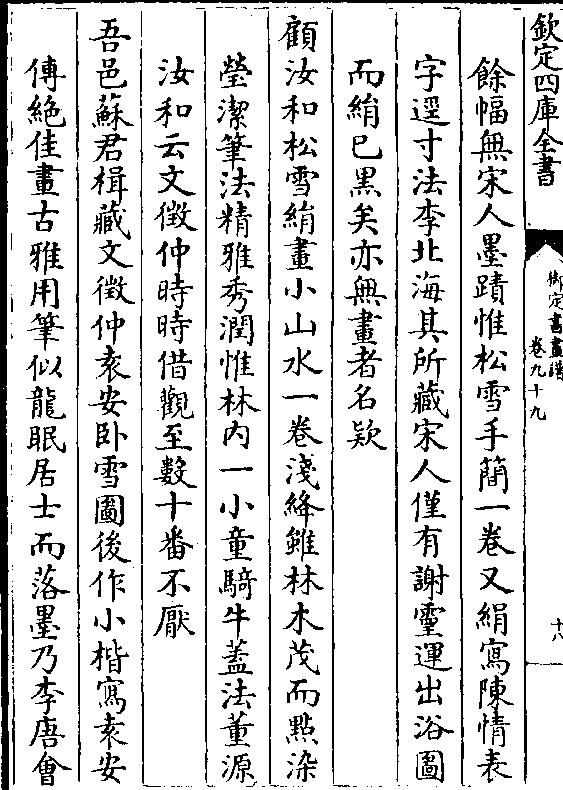 欽定四庫全書
御定書畫譜
卷九十九
十八
餘幅無宋人墨蹟惟松雪手蕳一卷又絹寫陳情表
字逕寸法李北海其所藏宋人僅有謝靈運出浴圖
而絹已黒矣亦無畫者名欵
顧汝和松雪絹畫小山水一卷淺絳雖林木茂而點染
瑩潔筆法精雅秀潤惟林内一小童騎牛蓋法董源
汝和云文徴仲時時借觀至數十番不厭
吾邑蘇君楫藏文徴仲袁安卧雪圖後作小楷寫袁安
傳絶佳畫古雅用筆似龍眠居士而落墨乃李唐會